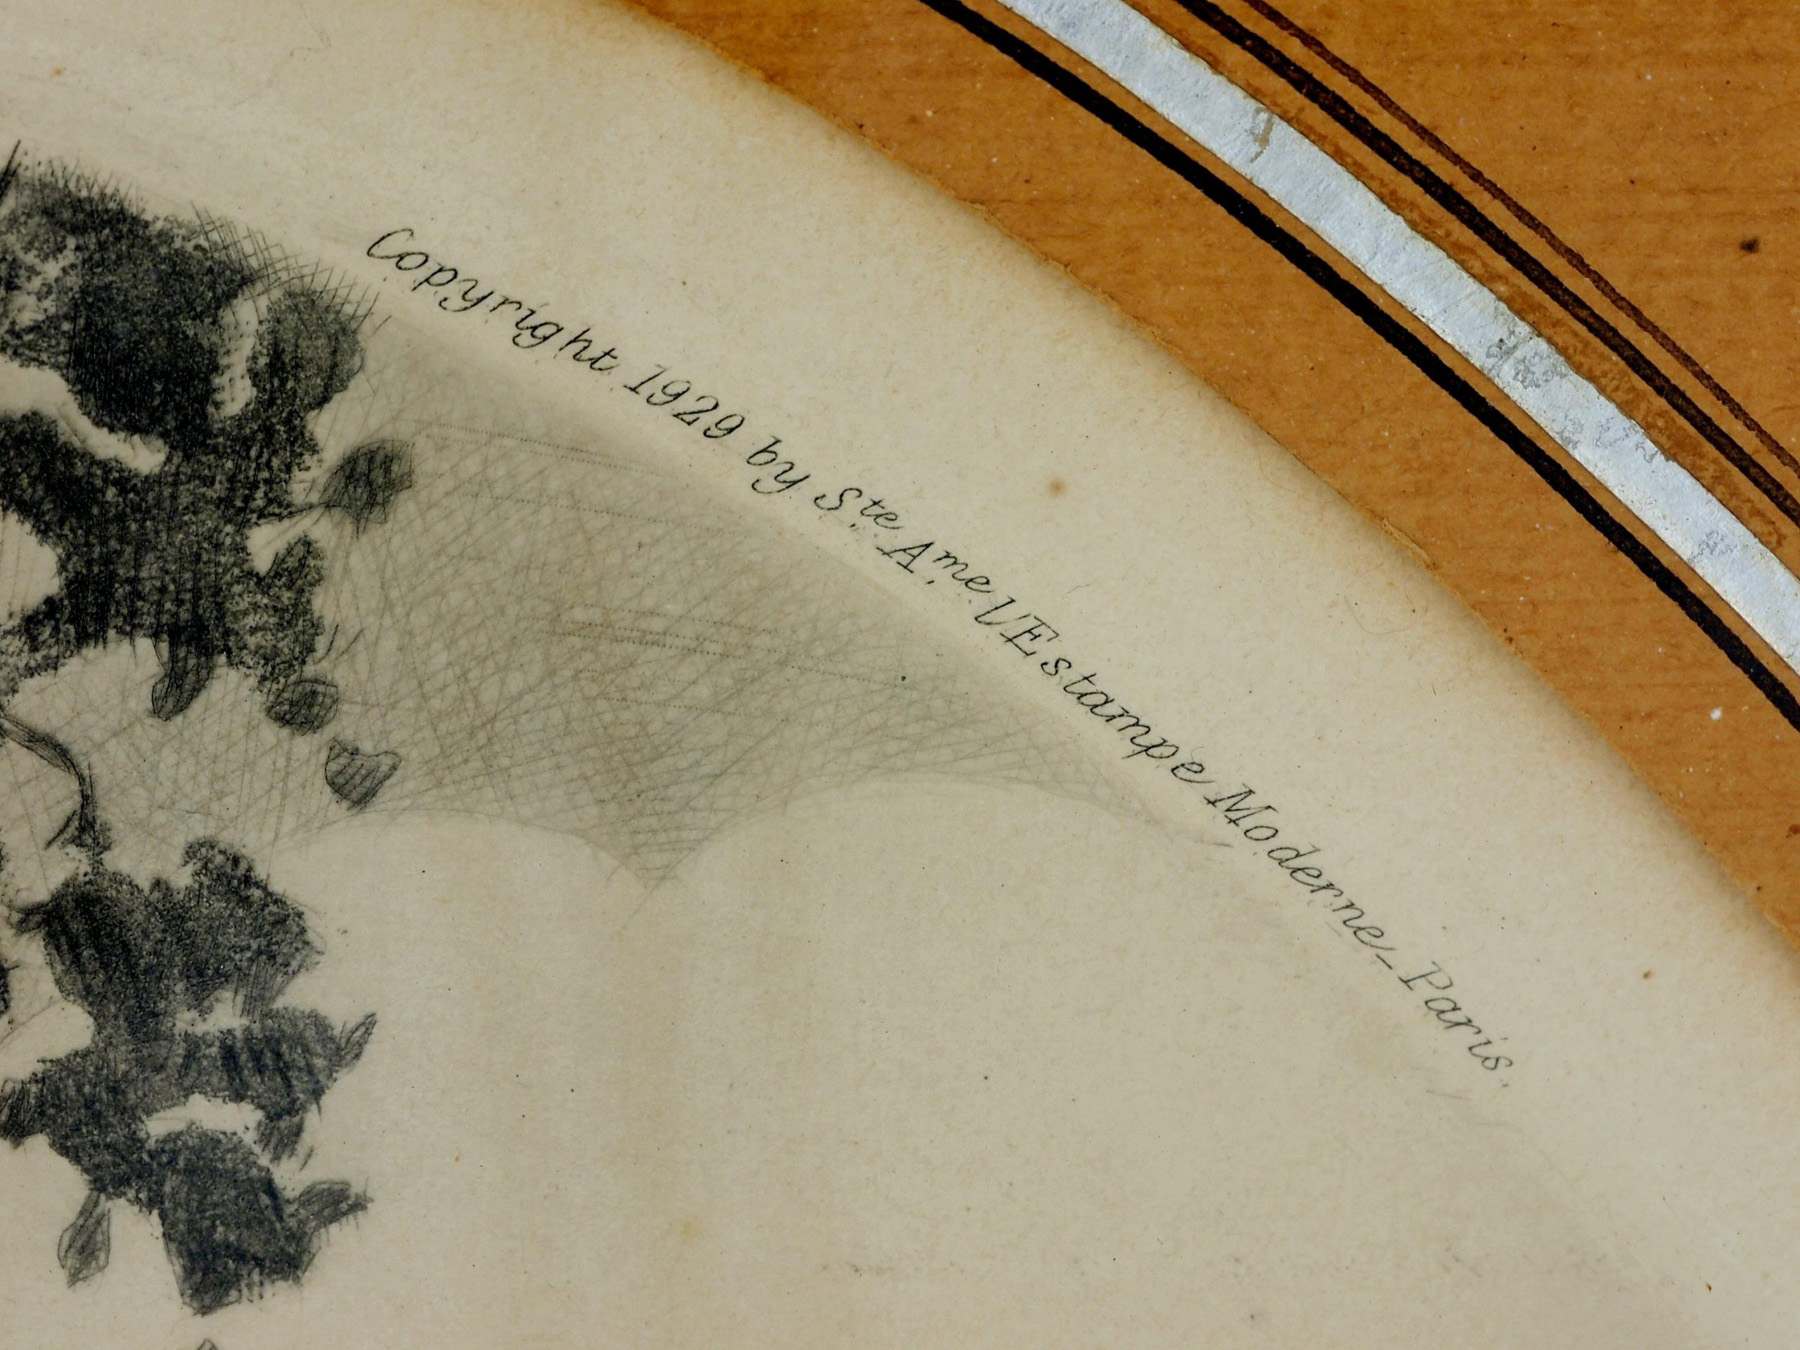 Copyright 1929 by Ste Ame l'Estampe Moderne_Paris.